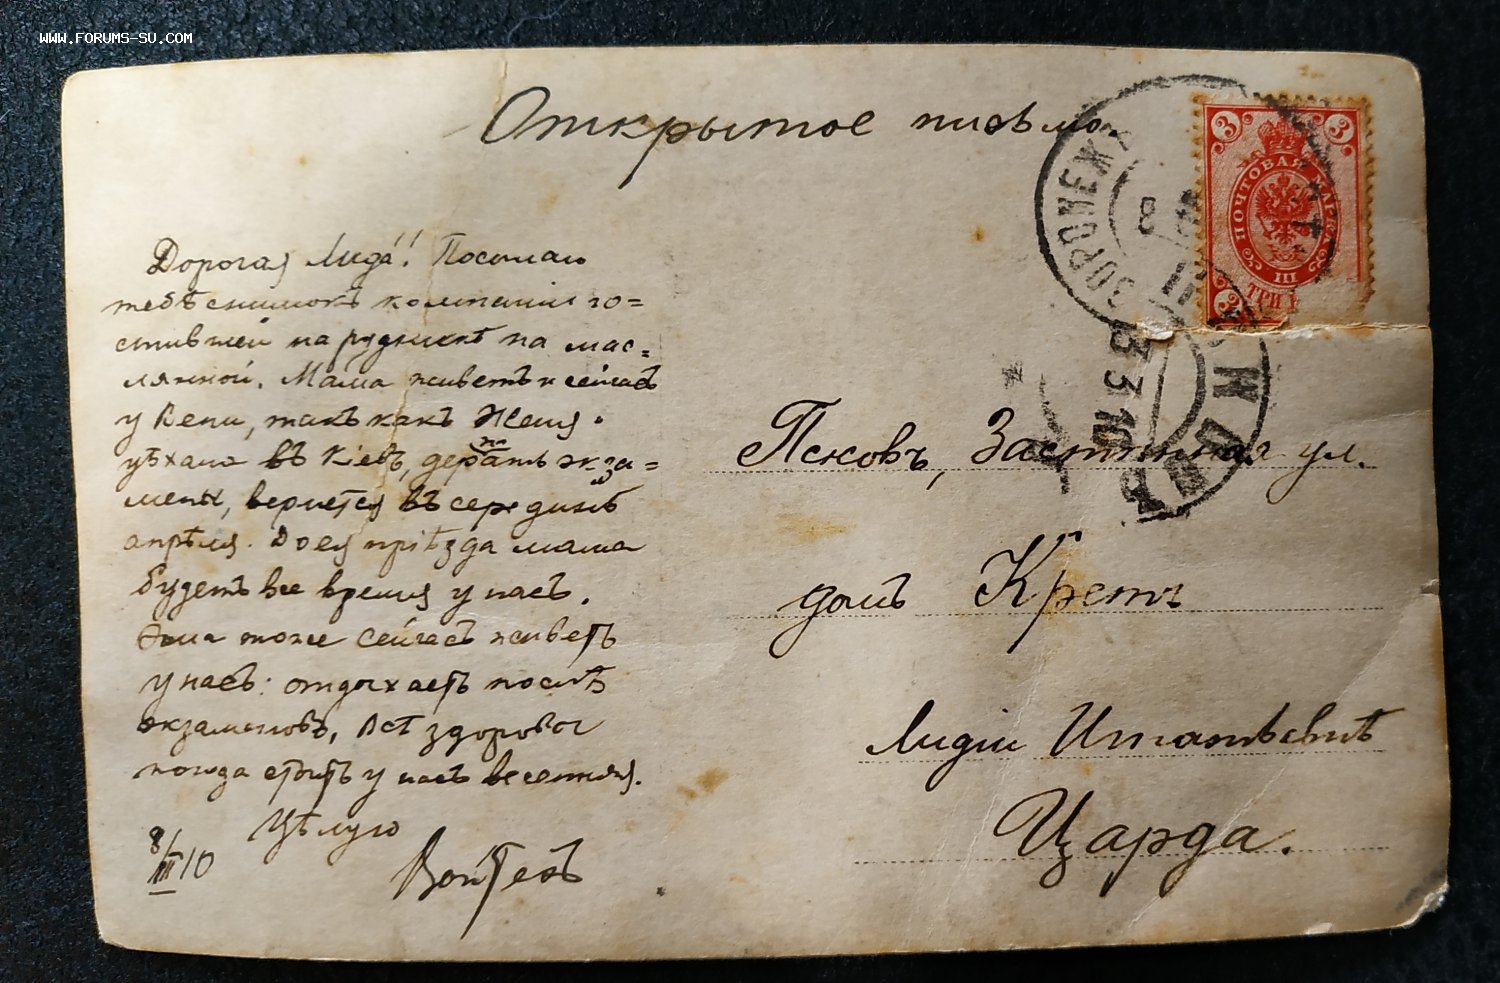 WWW.FORUMS-SU.COM
Открытое письмо
ВОРОНЕЖЪ
8
3
3
ПОЧТОВАЯ МАРКА
III
ТРИ
3
3 3 10
Дорогая Лида! Посылаю
тебѣ снимокъ компаніи го=
стившей на рудникѣ на мас=
лянной. Мама живетъ и сейчасъ
у Вени, такъ какъ Женя
уѣхала въ Кіевъ, держать экза=
мены, вернется въ серединѣ
апрѣля. До ея пріѣзда мама
будетъ все время у насъ.
тоже сейчасъ живетъ
у насъ: отдыхаетъ послѣ
экзаменовъ, всѣ здоровы
погода стоитъ у насъ весенняя.
Цѣлую
8/III 10
Войтехъ
Псковъ, Застѣнная ул.
домъ Кретъ
Лидіи Игнатьевнѣ
Царда.